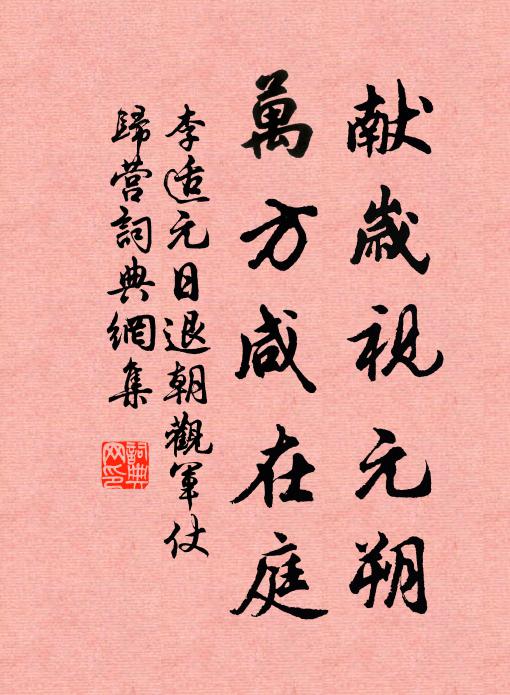 献歲視元朔
萬方咸在庭
李适元日退朝觀軍仗
歸营詞典網集
詞典網印